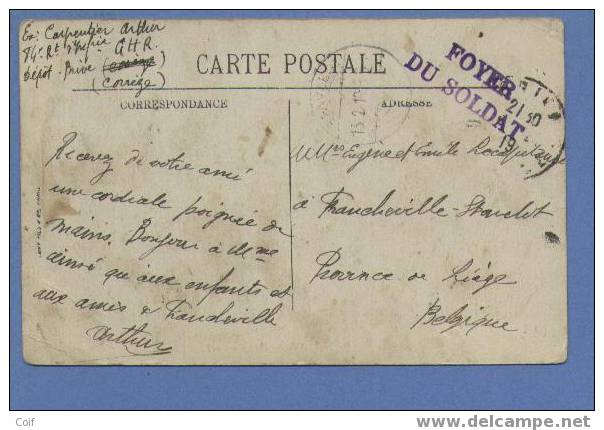 Ex: Carpentier Arthur
74e Rt d'Infrie G.H.R.
Dépôt - Brive (Corrèze)
(Corrèze)
CARTE POSTALE
FOYER
DU SOLDAT
CORRESPONDANCE
ADRESSE
21 30
19
13.2.19
Recevez de votre ami
une cordiale poignée de
mains. Bonjour à Mme
ainsi que aux enfants et
aux amis de Francheville
Arthur
MMrs Eugène et Emile
à Francheville-Stavelot
Province de Liège
Belgique
Coif
delcampe.net